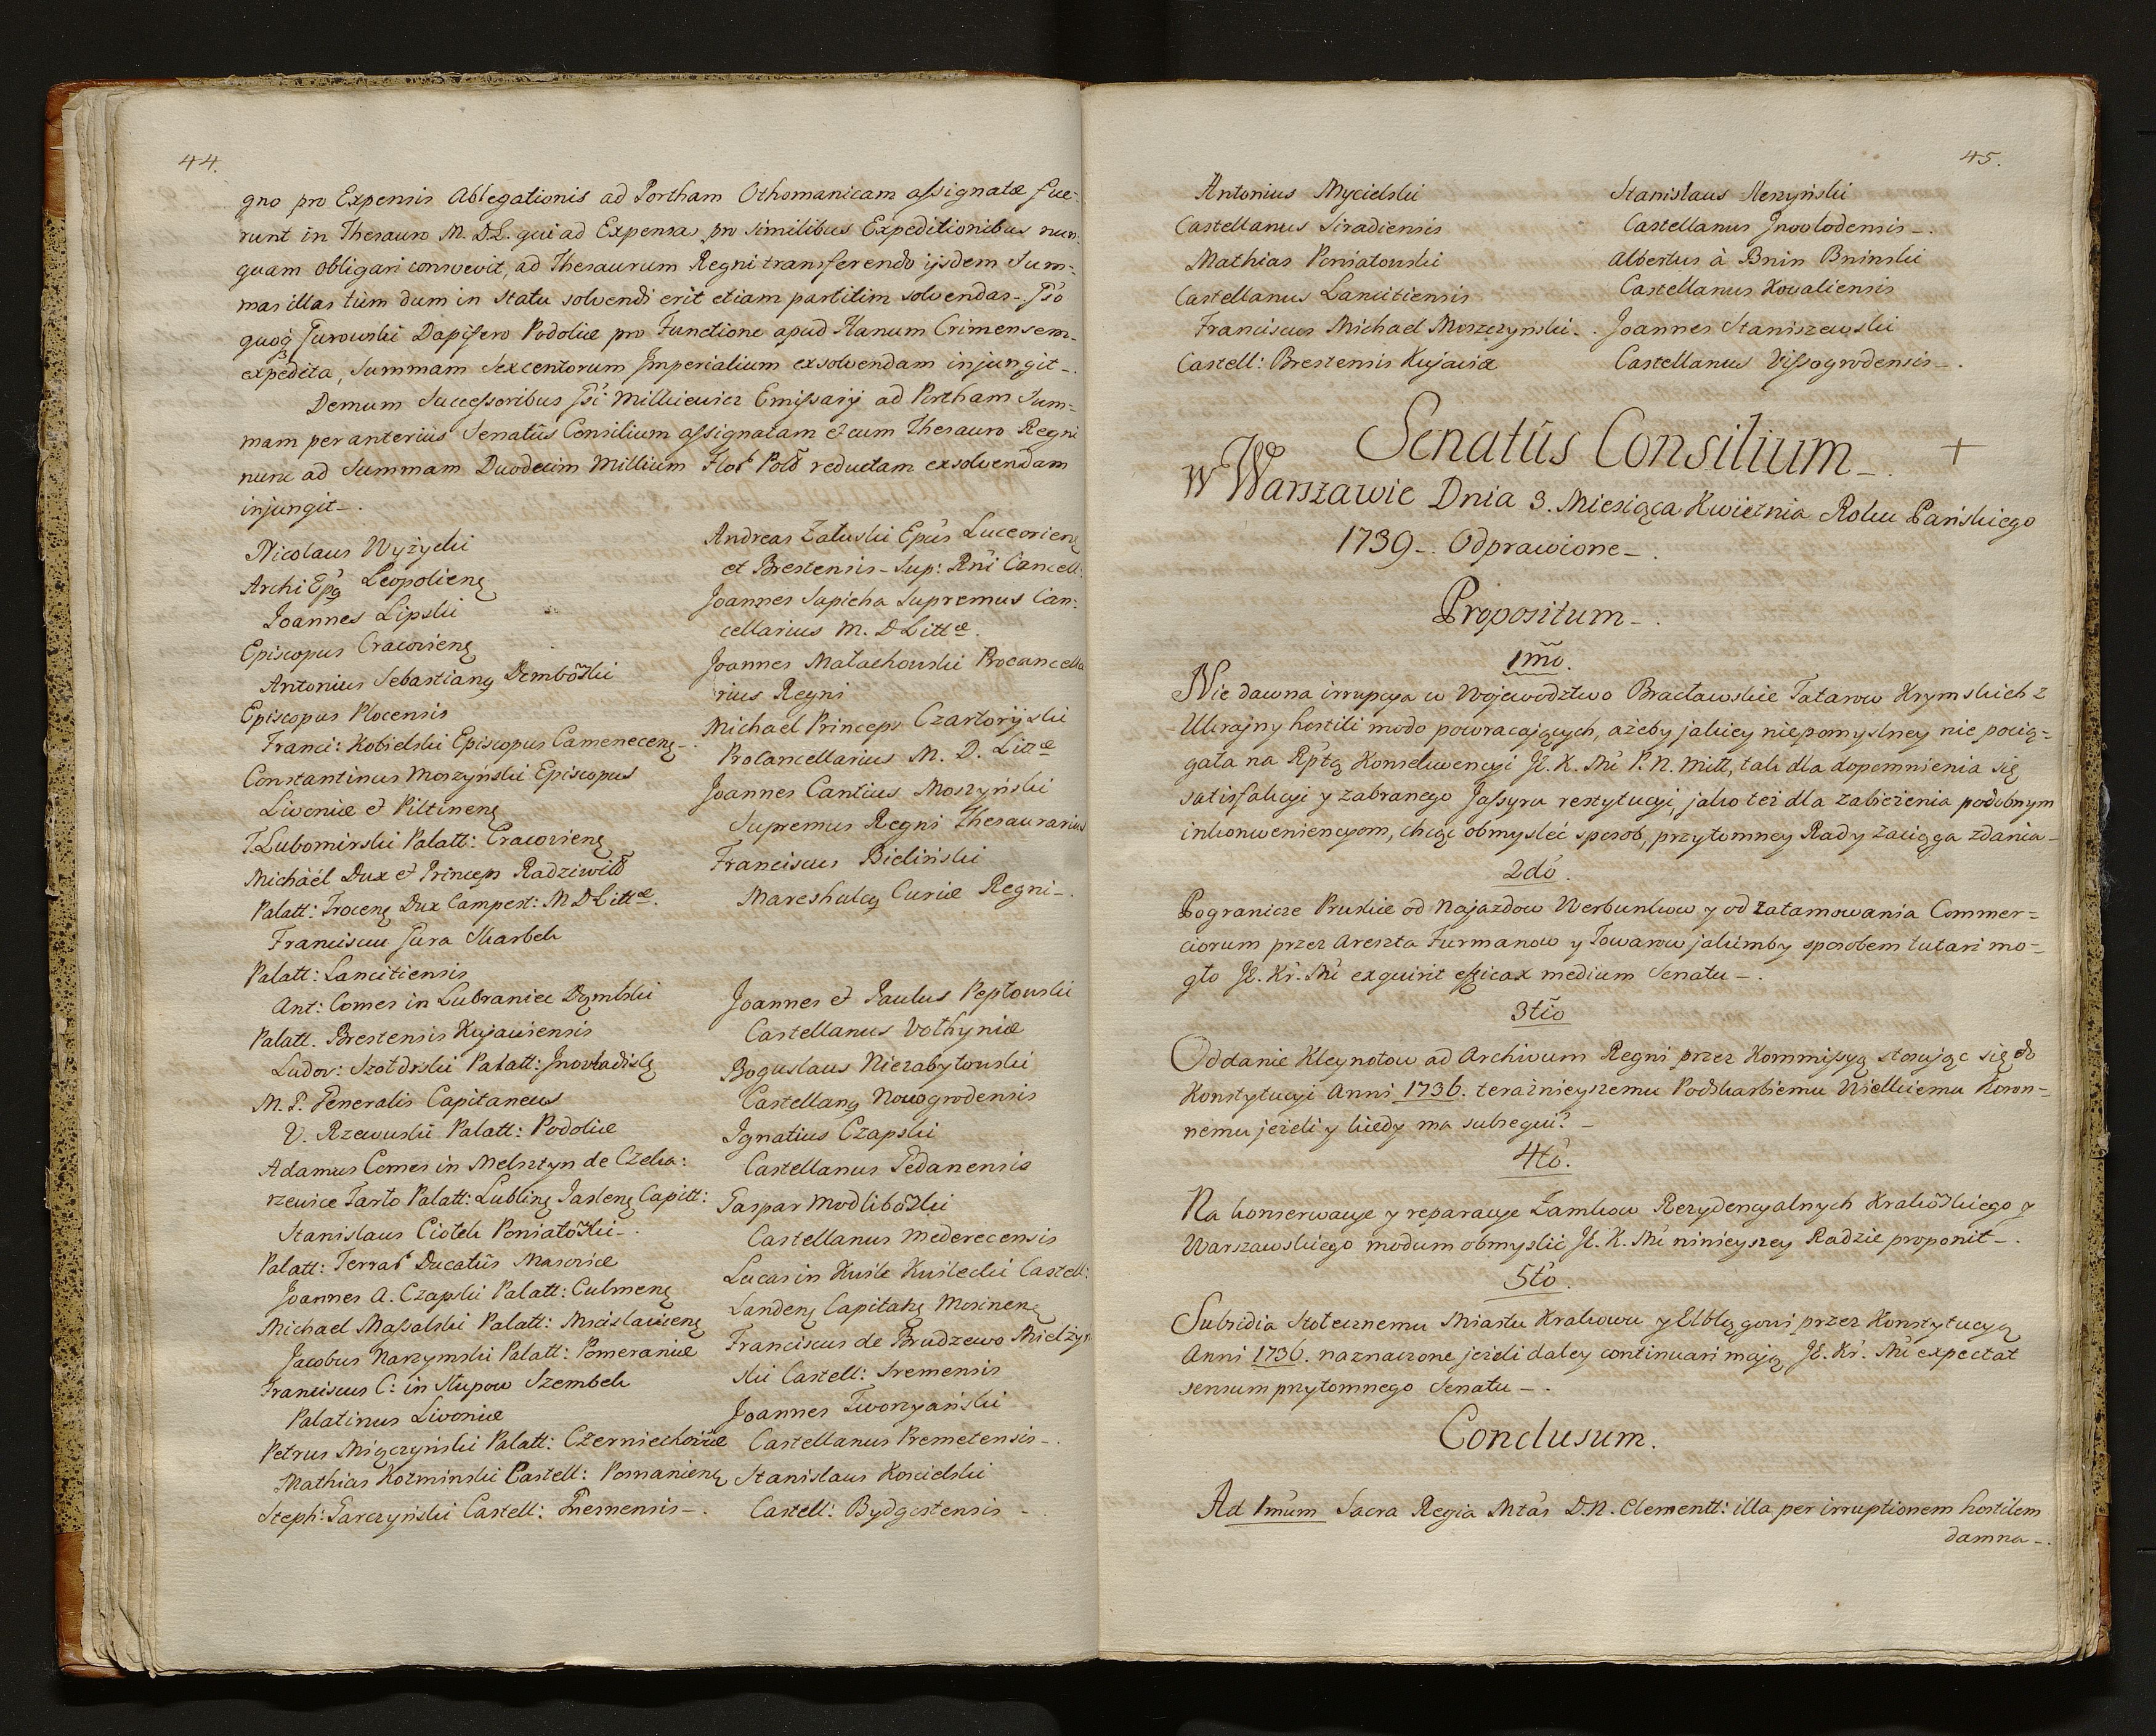 44.
gno pro Expensis Ablegationis ad Portham Othomanicam assignatæ fue=
runt in Thesauro M. D.L. qui ad Expensas pro similibus Expeditionibus nun=
quam obligari consvevit, ad Thesaurum Regni transferendo ijsdem Sum=
mas illas tùm dum in statu solvendi erit etiam partitim solvendas.
quoq Jurowski Dapifero Podoliæ pro Functione apud Hanum Crimensem
expedita, Summam Sexcentorum Imperialium exsolvendam injungit.
Demum Successoribus Milkiewicz Emissarij ad Portham Sum=
mam per anteriùs Senatûs Consilium assignatam et cum Thesauro Regni
nunc ad Summam Duodecim Millium reductam exsolvendam
injungit.
Nicolaus Wyżycki
Archi Epg Leopolieng
Joannes Lipski
Episcopus Cracovieng
Antonius Sebastiang Dembõski
Episcopus Plocensis
Franci: Kobielski Episcopus Cameneceng
Constantinus Moszyński Episcopus
Livoniæ et Piltineng
T. Lubomirski Palatt: Cracovieng
Michäel Dux et Princeps Radziwiłł
Palatt: Troceng Dux Campest: M D Littæ.
Franciscus Jura Skarbek
Palatt: Lancitiensis
Ant: Comes in Lubraniec Dąmbski
Palatt. Brestensis Kujaviensis
Ludov: Szołdrski Palatt: Jnovladislg
M. P. Generalis Capitaneus
V. Rzewuski Palatt: Podoliæ
Adamus Comes in Melsztyn de Czeka:
rzewice Tarło Palatt: Lubling Jasleng Capitt:
Stanislaus Ciołek Poniatõski.
Palatt: Ducatûs Masoviæ
Joannes A. Czapski Palatt: Culmeng
Michael Massalski Palatt: Mscislavieng
Jacobus Narzymski Palatt: Pomeraniæ
Franciscus C: in Słupow Szembek
Palatinus Livoniæ
Petrus Miączyński Palatt: Czerniechoviæ
Mathias Kozminski Castell: Posnanieng
Steph: Garczyński Castell: Gnesnensis.
Andreas Załuski Epûs Luceorieng
et Brestensis Sup: Rni Cancell:
Joannes Sapieha Supremus Can:
cellarius M. D Littæ.
Joannes Małachowski Procancella
rius Regni
Michael Princeps Czartoryski
Procancellarius M. D. Littæ
Joannes Cantius Moszyński
Supremus Regni Thesaurarius
Franciscus Bieliński
Mareshalcg Curiæ Regni.
Joannes et Paulus Pepłowski
Castellanus Volhyniæ
Boguslaus Niezabytowski
Castellang Nowogrodensis
Ignatius Czapski
Castellanus Gedanensis
Gaspar Modlibõski
Castellanus Mederecensis
Lucas in Kuślecki Castell:
Landeng Morineng
Franciscus de Brudzewo Mielżyn
ski Castell: Sremensis
Joannes Tworzyański
Castellanus Premetensis.
Stanislaus Kościelski
Castell: Bydgostensis
45.
Antonius Mycielski
Castellanus Siradiensis
Mathias Poniatowski
Castellanus Lancitiensis
Franciscus Michael Moszczyński.
Castell: Brestensis Kujaviæ
Stanislaus
Castellanus Jnovlodensis.
Albertus à Bnin Bninski
Castellanus Kovaliensis
Joannes Staniszewski
Castellanus Vissogrodensis.
Senatûs Consilium
W Warszawie Dnia 3. Miesiąca Kwietnia Roku Pańskiego
1739. Odprawione.
Propositum.
1mõ.
Nie dawna irrupcya w Wojewodztwo Bracławskie Tatarow Krymskich z
Ukrajny hostili modo powracających, ażeby jakiey niepomyslney nie pocią=
gała na Rptą Konsekwencyi JE. K. Mć P. N. Mitt, tak dla dopomnienia się
satisfakcyi y zabranego Jassyru restytucyi, jako też dla zabieżenia podobnym
inkonweniencyom, chcąc obmysleć sposob, przytomney Rady zaciąga zdania
2dó.
Pogranicze Pruskie od Najazdow Werbunkow y od zatamowania Commer=
ciorum przez Areszta Furmanow y Towarow jakimby sposobem tutari mo=
gło JE. Kr. Mć exquirit efficax medium Senatu.
3tiõ
Oddanie Kleynotow ad Archivum Regni przez Kommissyą stosując się do
Konstytucyi Anni 1736. teraznieyszemu Podskarbiemu Wielkiemu Koron=
nemu jeżeli y kiedy ma subsequi?
4tõ.
Na konserwacye y reparacye Zamkow Rezydencyalnych Krakõskiego y
Warszawskiego modum obmyslić JE. K. Mć ninieyszey Radzie proponit.
5tõ.
Subsidia Stołecznemu Miastu Krakowu y Elblągowi przez Konstytucyą
Anni 1736. naznaczone jeżeli daley continuari mają JE. Kr. Mć expectat
sensum przytomnego Senatu.
Conclusum.
Ad 1mum Sacra Regia Mtas D. N. Clementt: illa per irruptionem hostilem
damna.